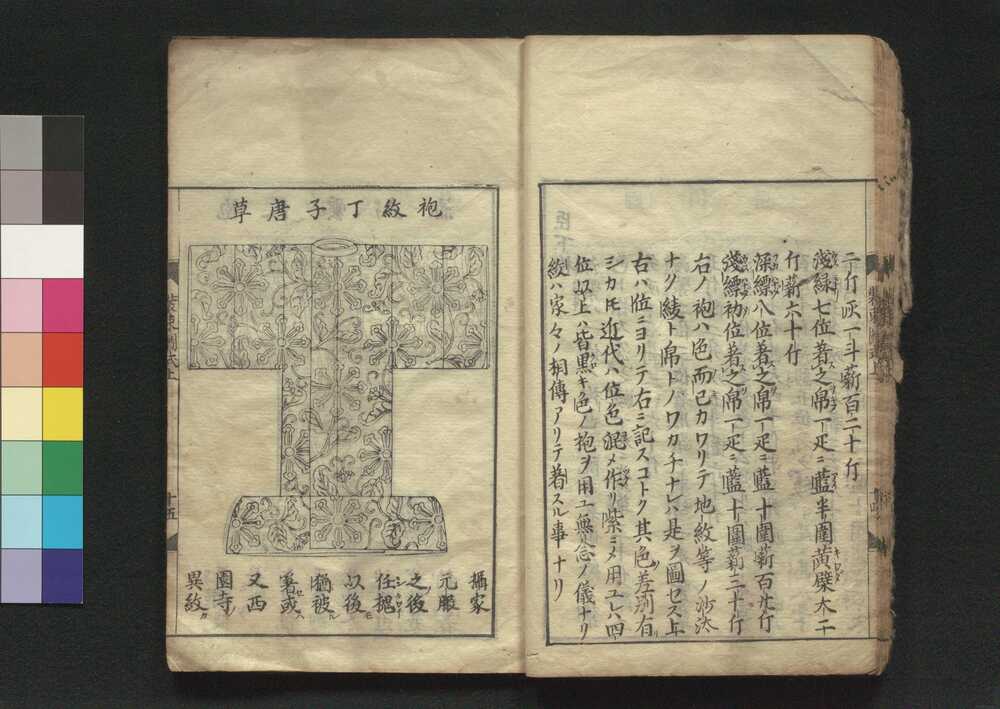 二斤灰一斗薪百二十斤
淺緑七位著之帛一疋ニ藍半圍黄檗大二
斤薪六十斤
深縹八位著之帛一疋ニ藍十圍薪百廿斤
淺縹初位著之帛一疋ニ藍十圍薪三十斤
右ノ袍ハ色而已カワリテ地紋等ノ沙汰
ナク綾ト帛トノワカチナレハ是ヲ圖セス上
古ハ位ニヨリテ右ニ記スコトク其色差別有
シカモ近代ハ位色混メ作リ紫ニメ用ユレハ四
位以上ハ皆黒キ色ノ袍ヲ用ユ無念ノ儀ナリ
紋ハ家々ノ相傳アリテ著スル事ナリ
袍紋丁子唐草
攝家
元服
之後
任摂
以後
猶被
著或
又西
園寺
異紋
十五